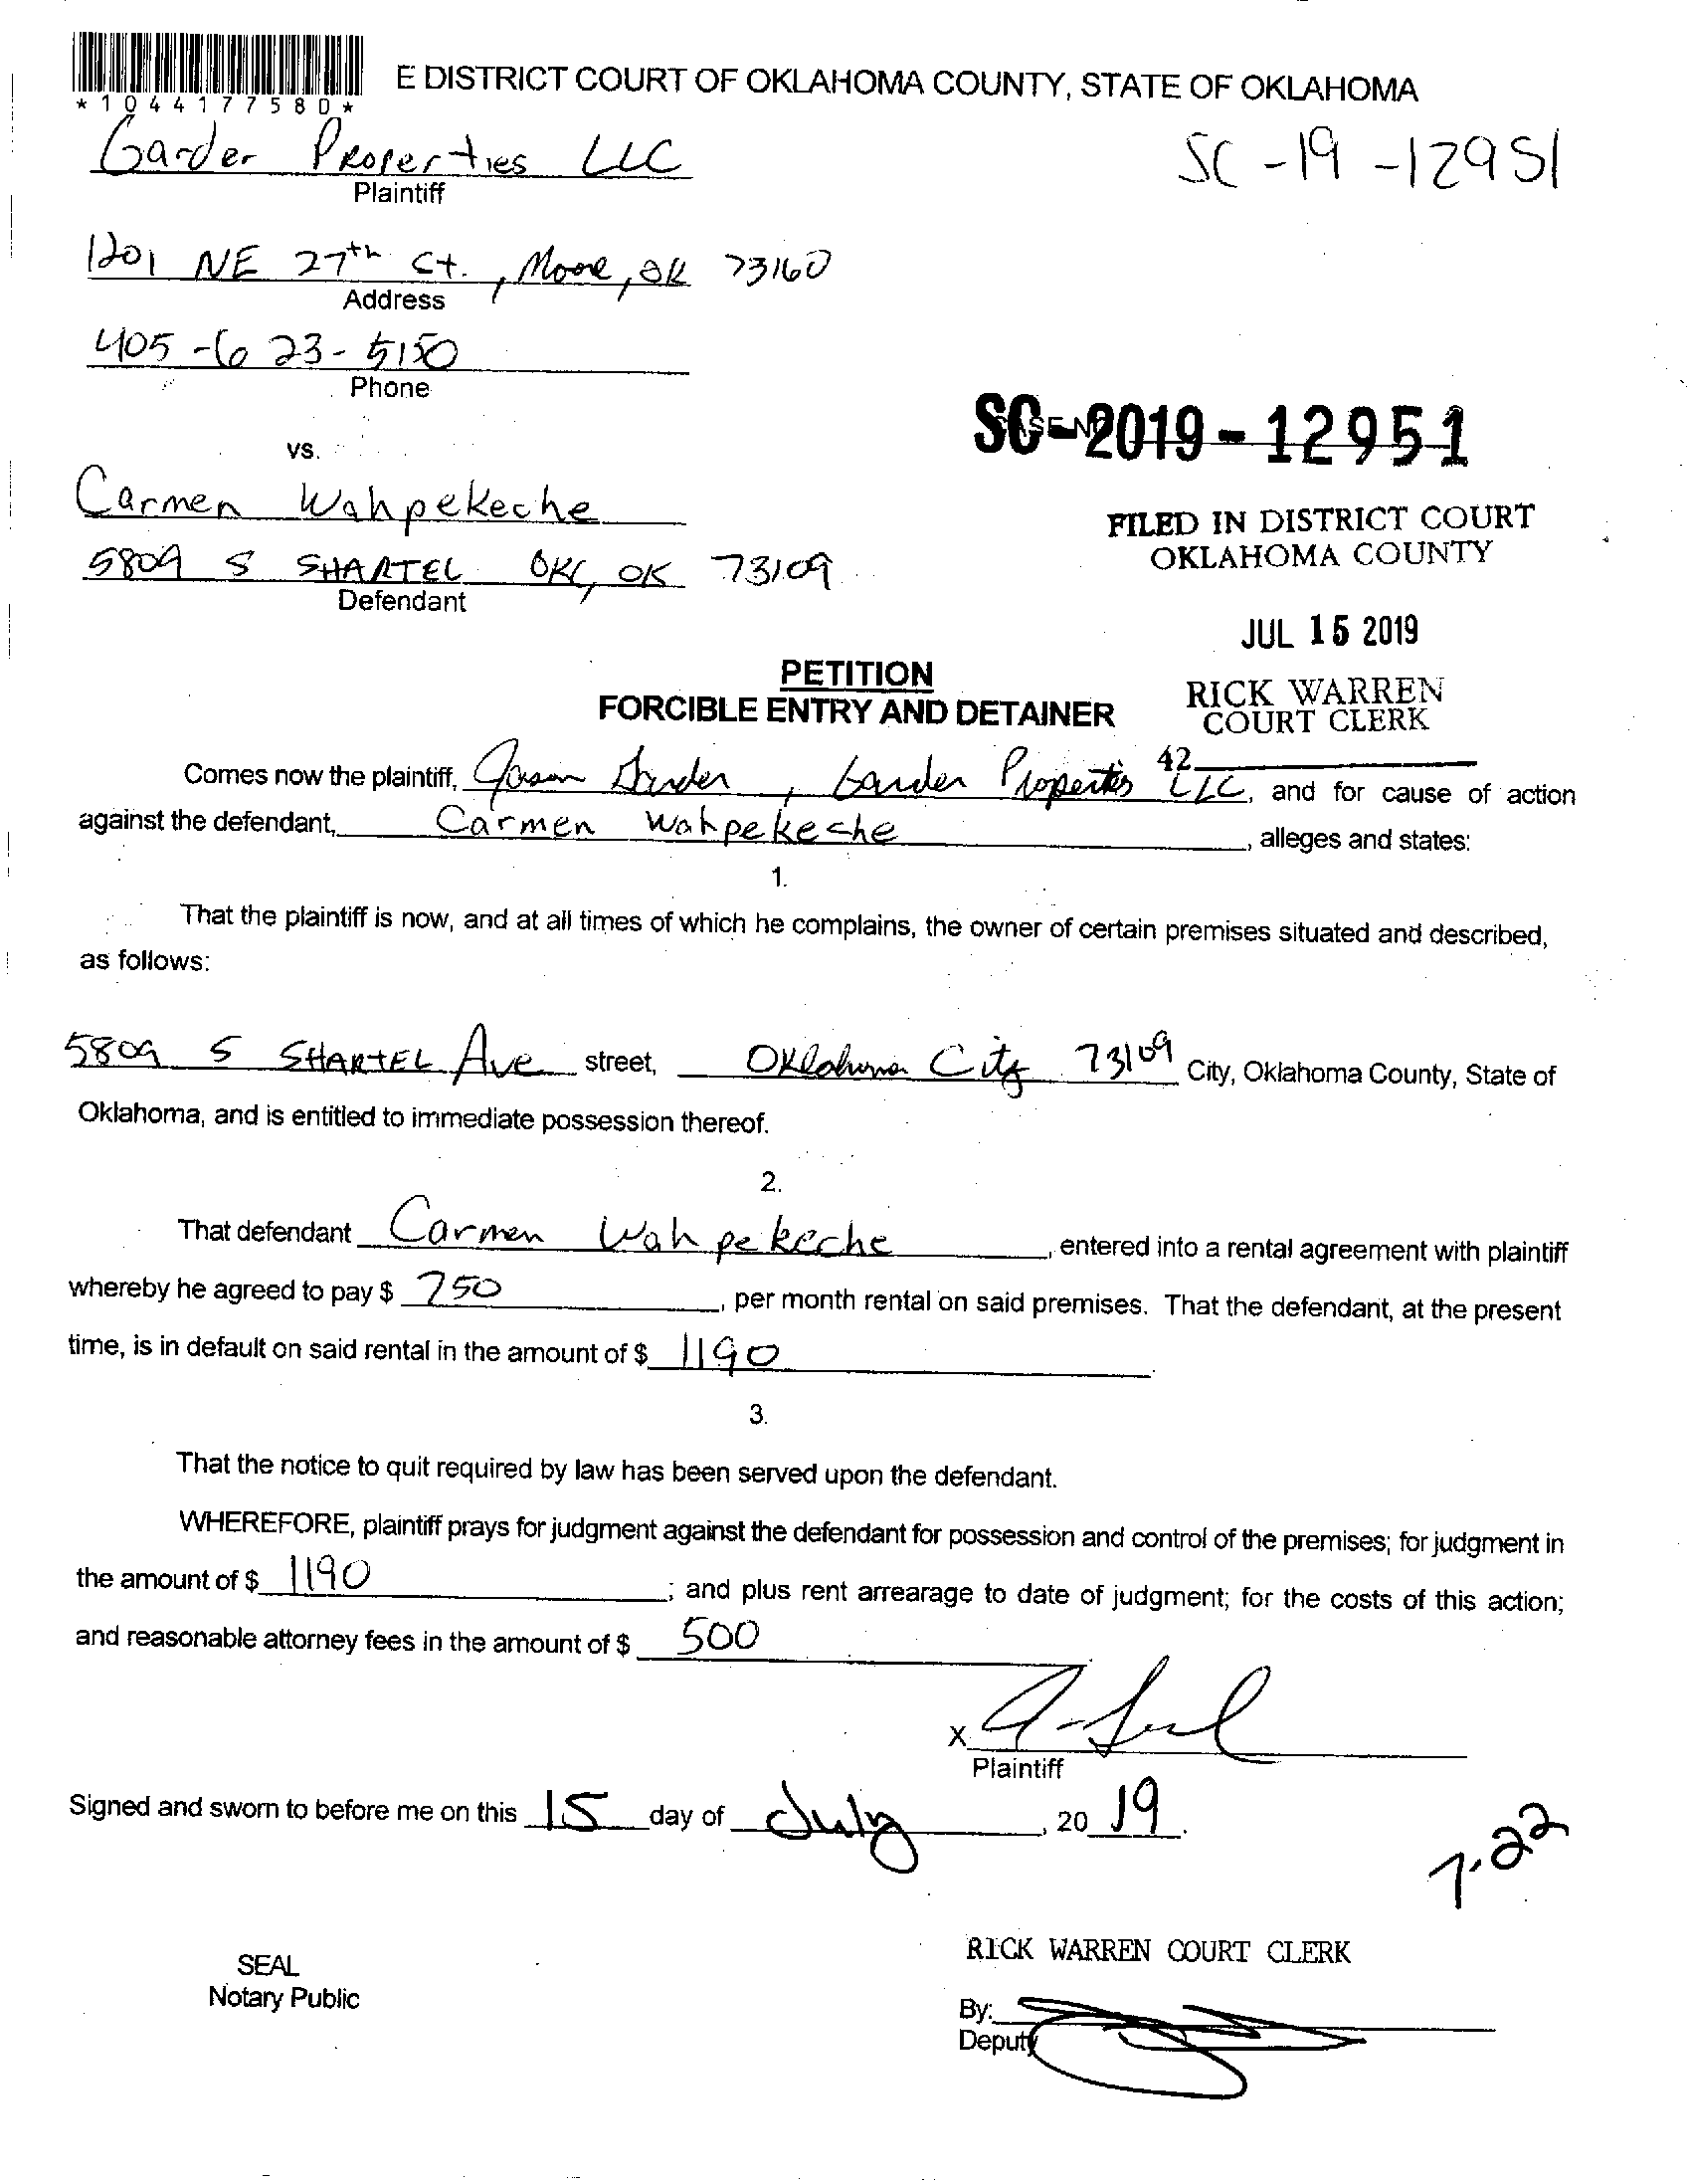 *1044177580*
E DISTRICT COURT OF OKLAHOMA COUNTY, STATE OF OKLAHOMA
Garder Properties LLC
SC-19-12951
Plaintiff
1201 NE 27th Ct., Moore, OK 73160
Address
405-623-5150
Phone
SC-2019-12951
vs.
Carmen Wahpekeche
5809 S SHARTEL OKC, OK 73109
Defendant
FILED IN DISTRICT COURT
OKLAHOMA COUNTY
JUL 15 2019
RICK WARREN
COURT CLERK
42
PETITION
FORCIBLE ENTRY AND DETAINER
Comes now the plaintiff, Jason Garder, Garder Properties LLC, and for cause of action
against the defendant, Carmen Wahpekeche, alleges and states:
1.
That the plaintiff is now, and at all times of which he complains, the owner of certain premises situated and described,
as follows:
5809 S SHARTEL Ave street, Oklahoma City 73109 City, Oklahoma County, State of
Oklahoma, and is entitled to immediate possession thereof.
2.
That defendant Carmen Wahpekeche, entered into a rental agreement with plaintiff
whereby he agreed to pay $ 750, per month rental on said premises. That the defendant, at the present
time, is in default on said rental in the amount of $ 1190
3.
That the notice to quit required by law has been served upon the defendant.
WHEREFORE, plaintiff prays for judgment against the defendant for possession and control of the premises; for judgment in
the amount of $ 1190; and plus rent arrearage to date of judgment; for the costs of this action;
and reasonable attorney fees in the amount of $ 500
X
Plaintiff
Signed and sworn to before me on this 15 day of July, 20 19.
7.22
SEAL
Notary Public
RICK WARREN COURT CLERK
By:
Deputy